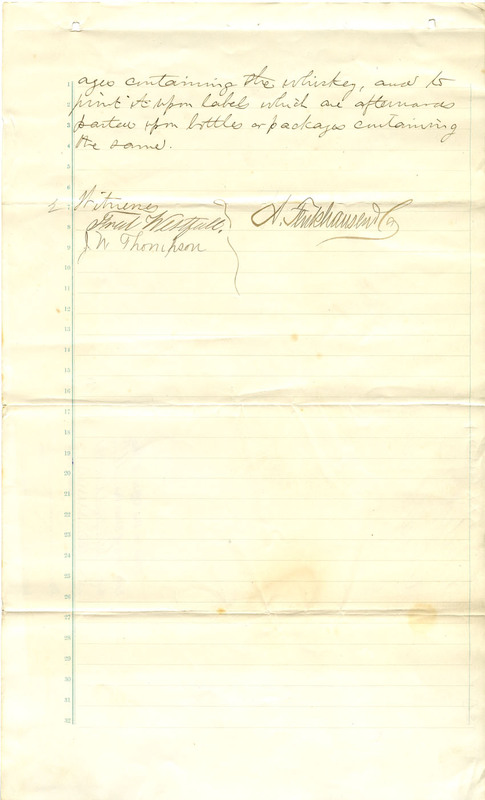 ages containing the whiskey, and to
print it upon label which are afterwards
pasted upon bottles or packages containing
the same.
Witnesses
Fred Westfall.
J W Thompson
A. Fenkhausen & Co
1
2
3
4
5
6
7
8
9
10
11
12
13
14
15
16
17
18
19
20
21
22
23
24
25
26
27
28
29
30
31
32